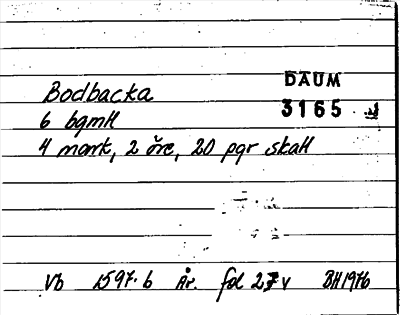 Bodbacka
DAUM
3165
6 bqmtl
4 mark, 2 öre, 20 pgr skatt
Vb 1597:6 År. fol 27v BH1976